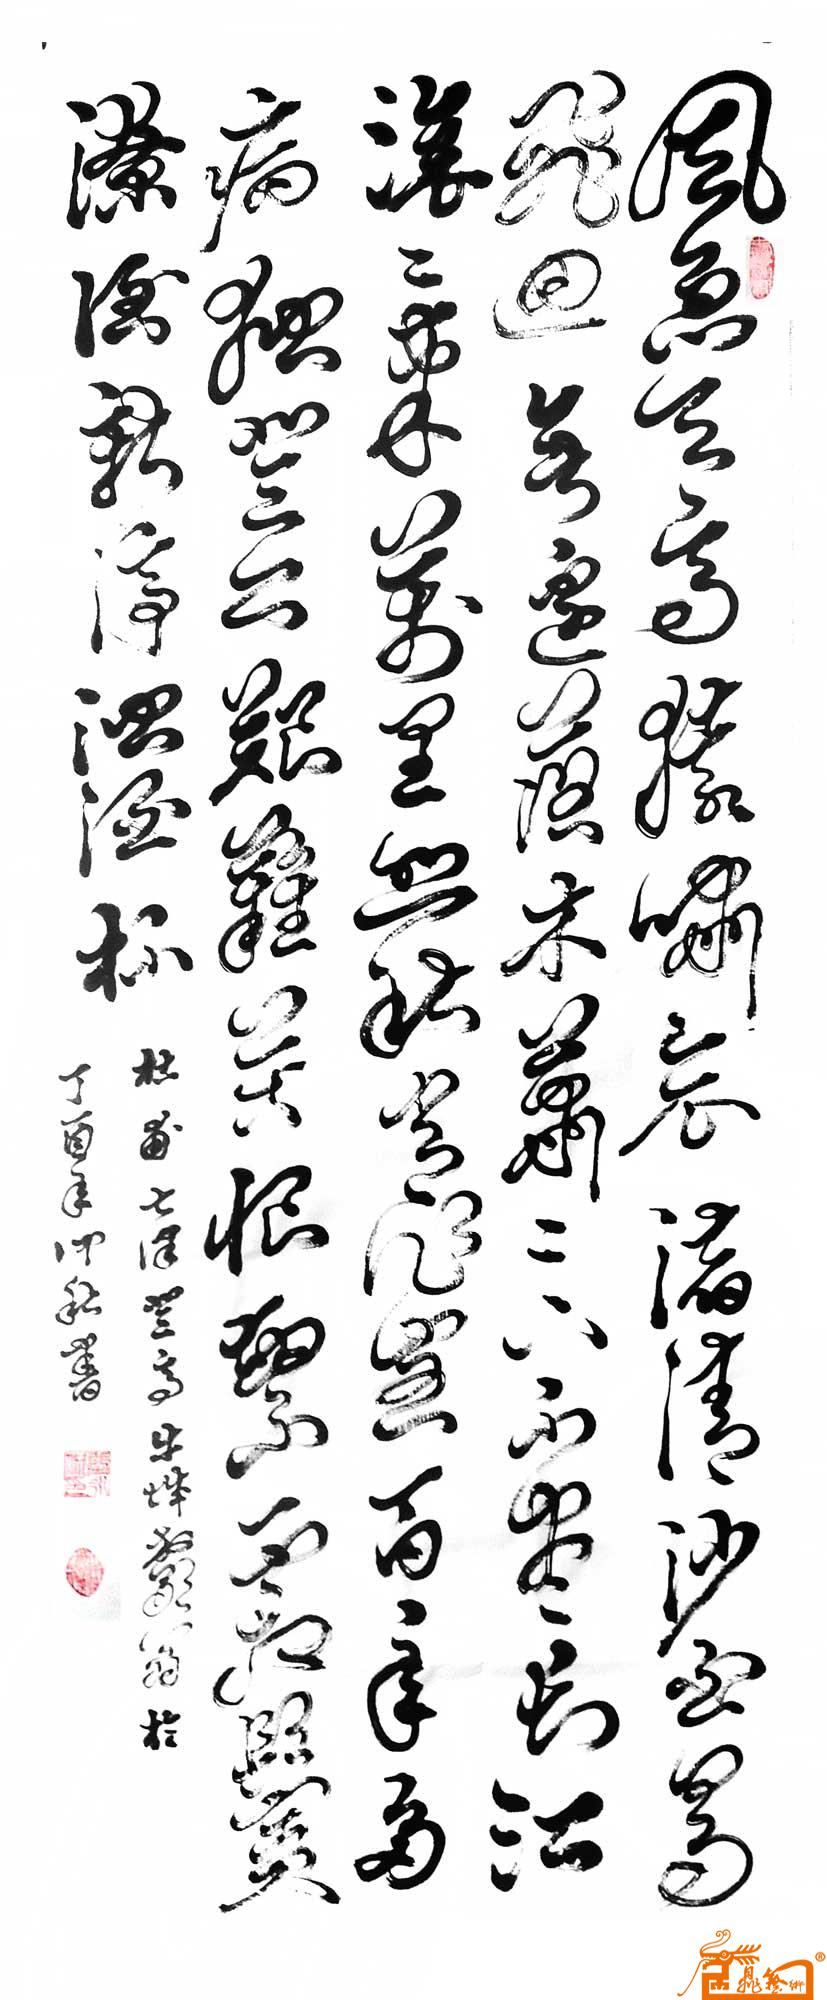 風急天高猿嘯哀渚清沙白鳥
飛迴無邊落木蕭〻下不盡長江
滾〻來萬里悲秋常作客百年多
病獨登台艱難苦恨繁霜鬢
潦倒新停濁酒杯
杜甫七律登高 翁於
丁酉年仲秋書